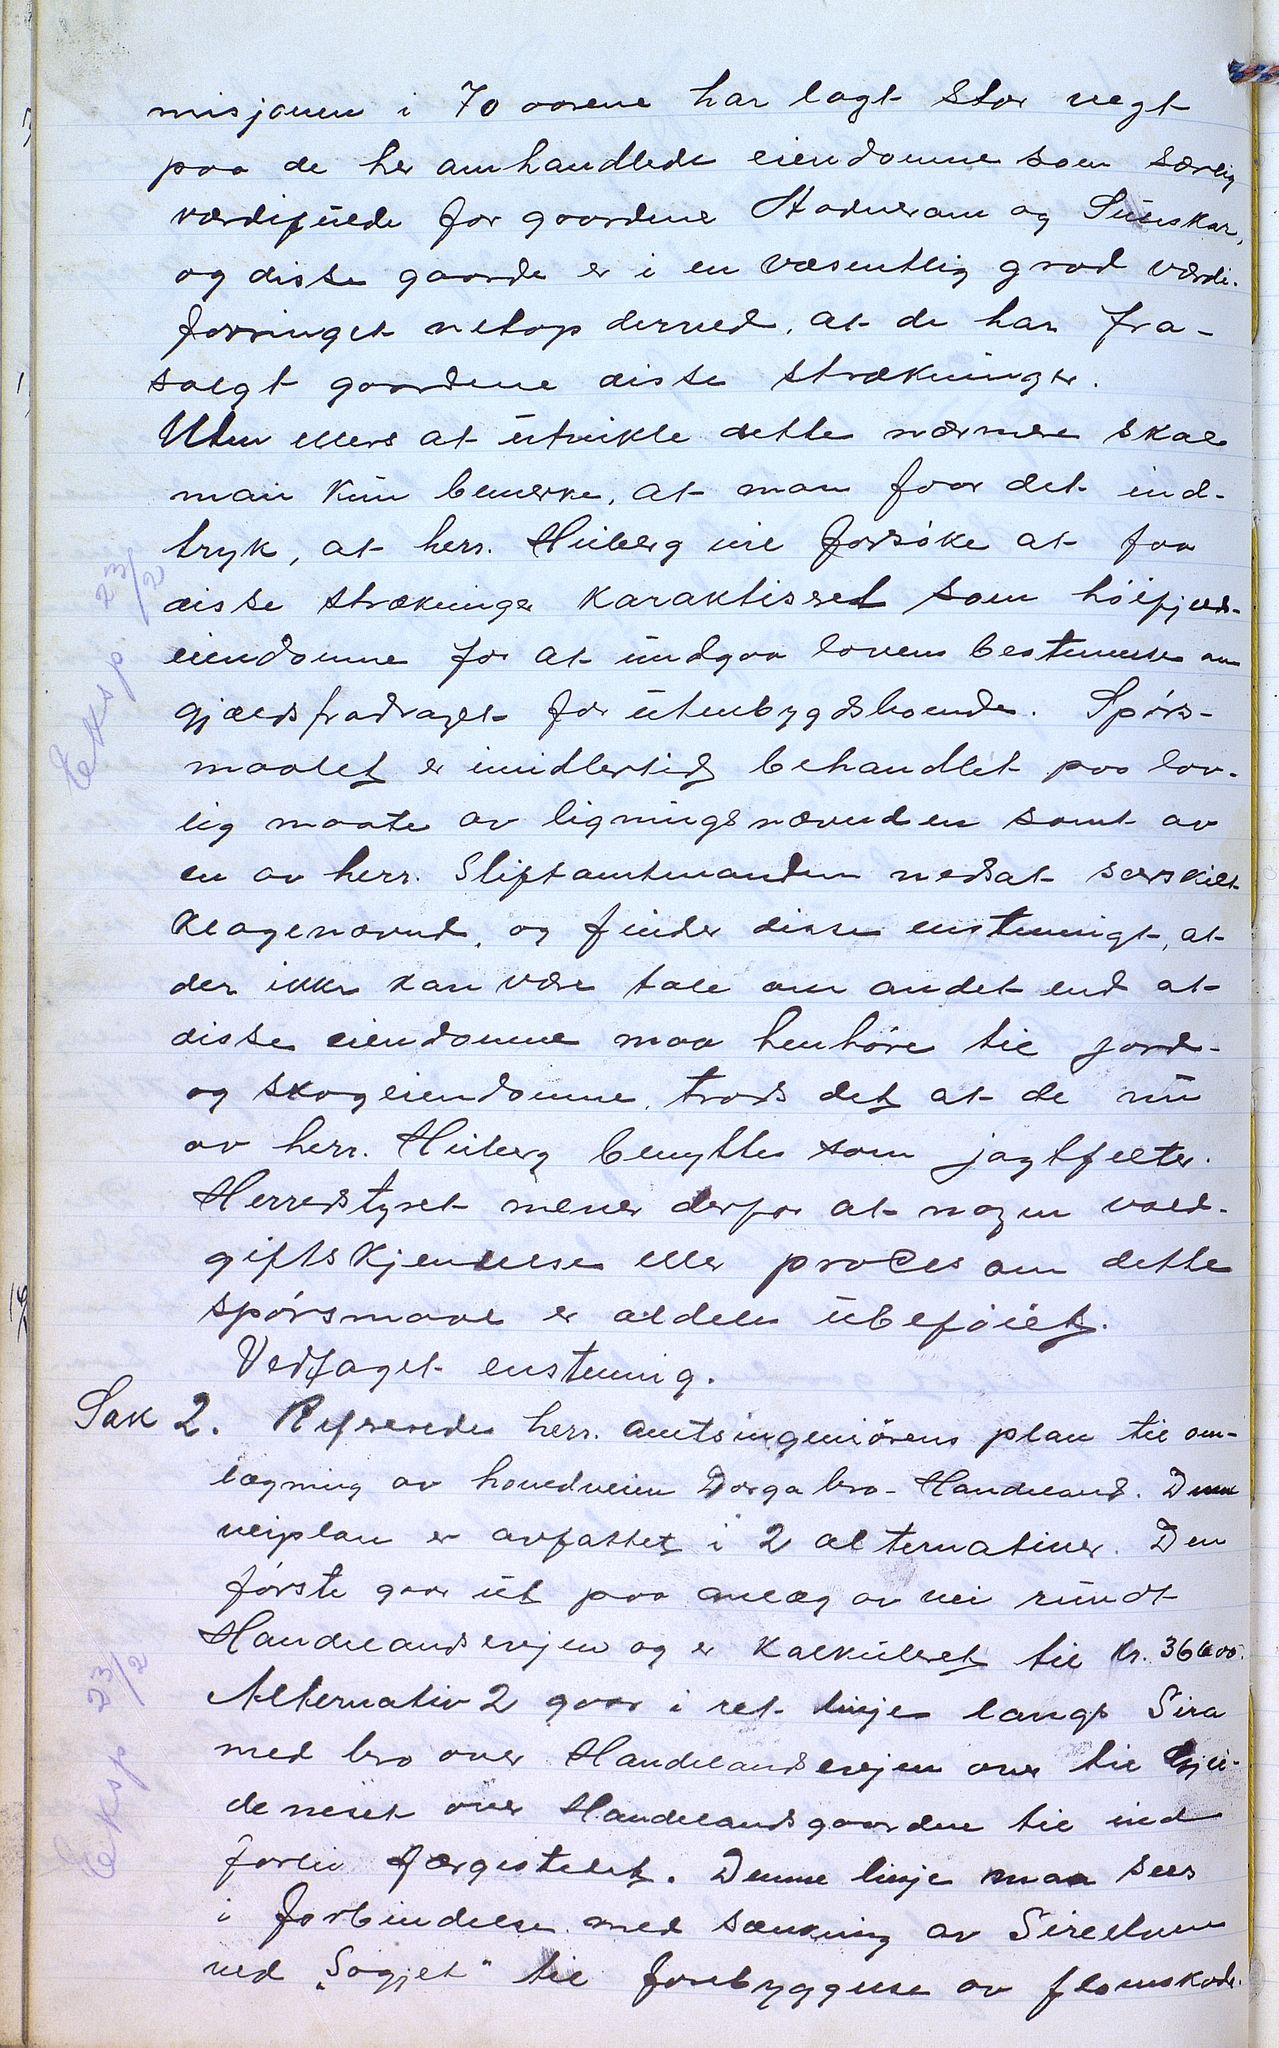 misjonen i 70 aarene har lagt stor vegt
paa de her omhandlede eiendomme som særlig
værdifulde for gaardene Hadneram og Suuskar,
og disse gaarde er i en væsentlig grad værdi-
forringet netop derved, at de har fra-
solgt gaardene disse strækninger.
Uten ellers at utvikle dette nærmere skal
man kun bemerke, at man faar det ind-
tryk, at herr. Hiberg vil forsøke at faa
disse strækninger karaktisert som høifjelds-
eiendomme for at undgaa lovens bestemmelse om
gjældsfradraget for utenbygdsboende. Spørs-
maalet er imidlertid behandlet paa lov-
lig maate av ligningsnævnden samt av
en av herr. Stiftamtmanden nedsat særskilt
klagenævnd, og finder disse enstemmigt, at
der ikke kan være tale om andet end at
disse eiendomme maa henhøre til jord-
og skogeiendomme, trods det at de nu
av herr. Hiberg benyttes som jagtfelter.
Herredstyret mener derfor at nogen vold-
giftskjendelse eller proces om dette
spørsmaal er aldeles ubeføiet.
Vedtaget enstemmig.
Sak 2. Refereredes herr. amtsingeniørens plan til om-
lægning av hovedveien Dorga bro - Handeland. Denne
veiplan er avfattet i 2 alternativer. Den
første gaar ut paa anlæg av vei rundt
Handelandsevjen og er kalkuleret til kr.
Alternativ 2 gaar i ret linje langs Sira
med bro over Handelandsevjen over til
over Handelandsgaardene til ind
forbi færgestedet. Denne linje maa sees
i forbindelse med sænkning av
ved "Sogjet" til forebyggelse av flomskade.
Eksp 23/2
Eksp 23/2